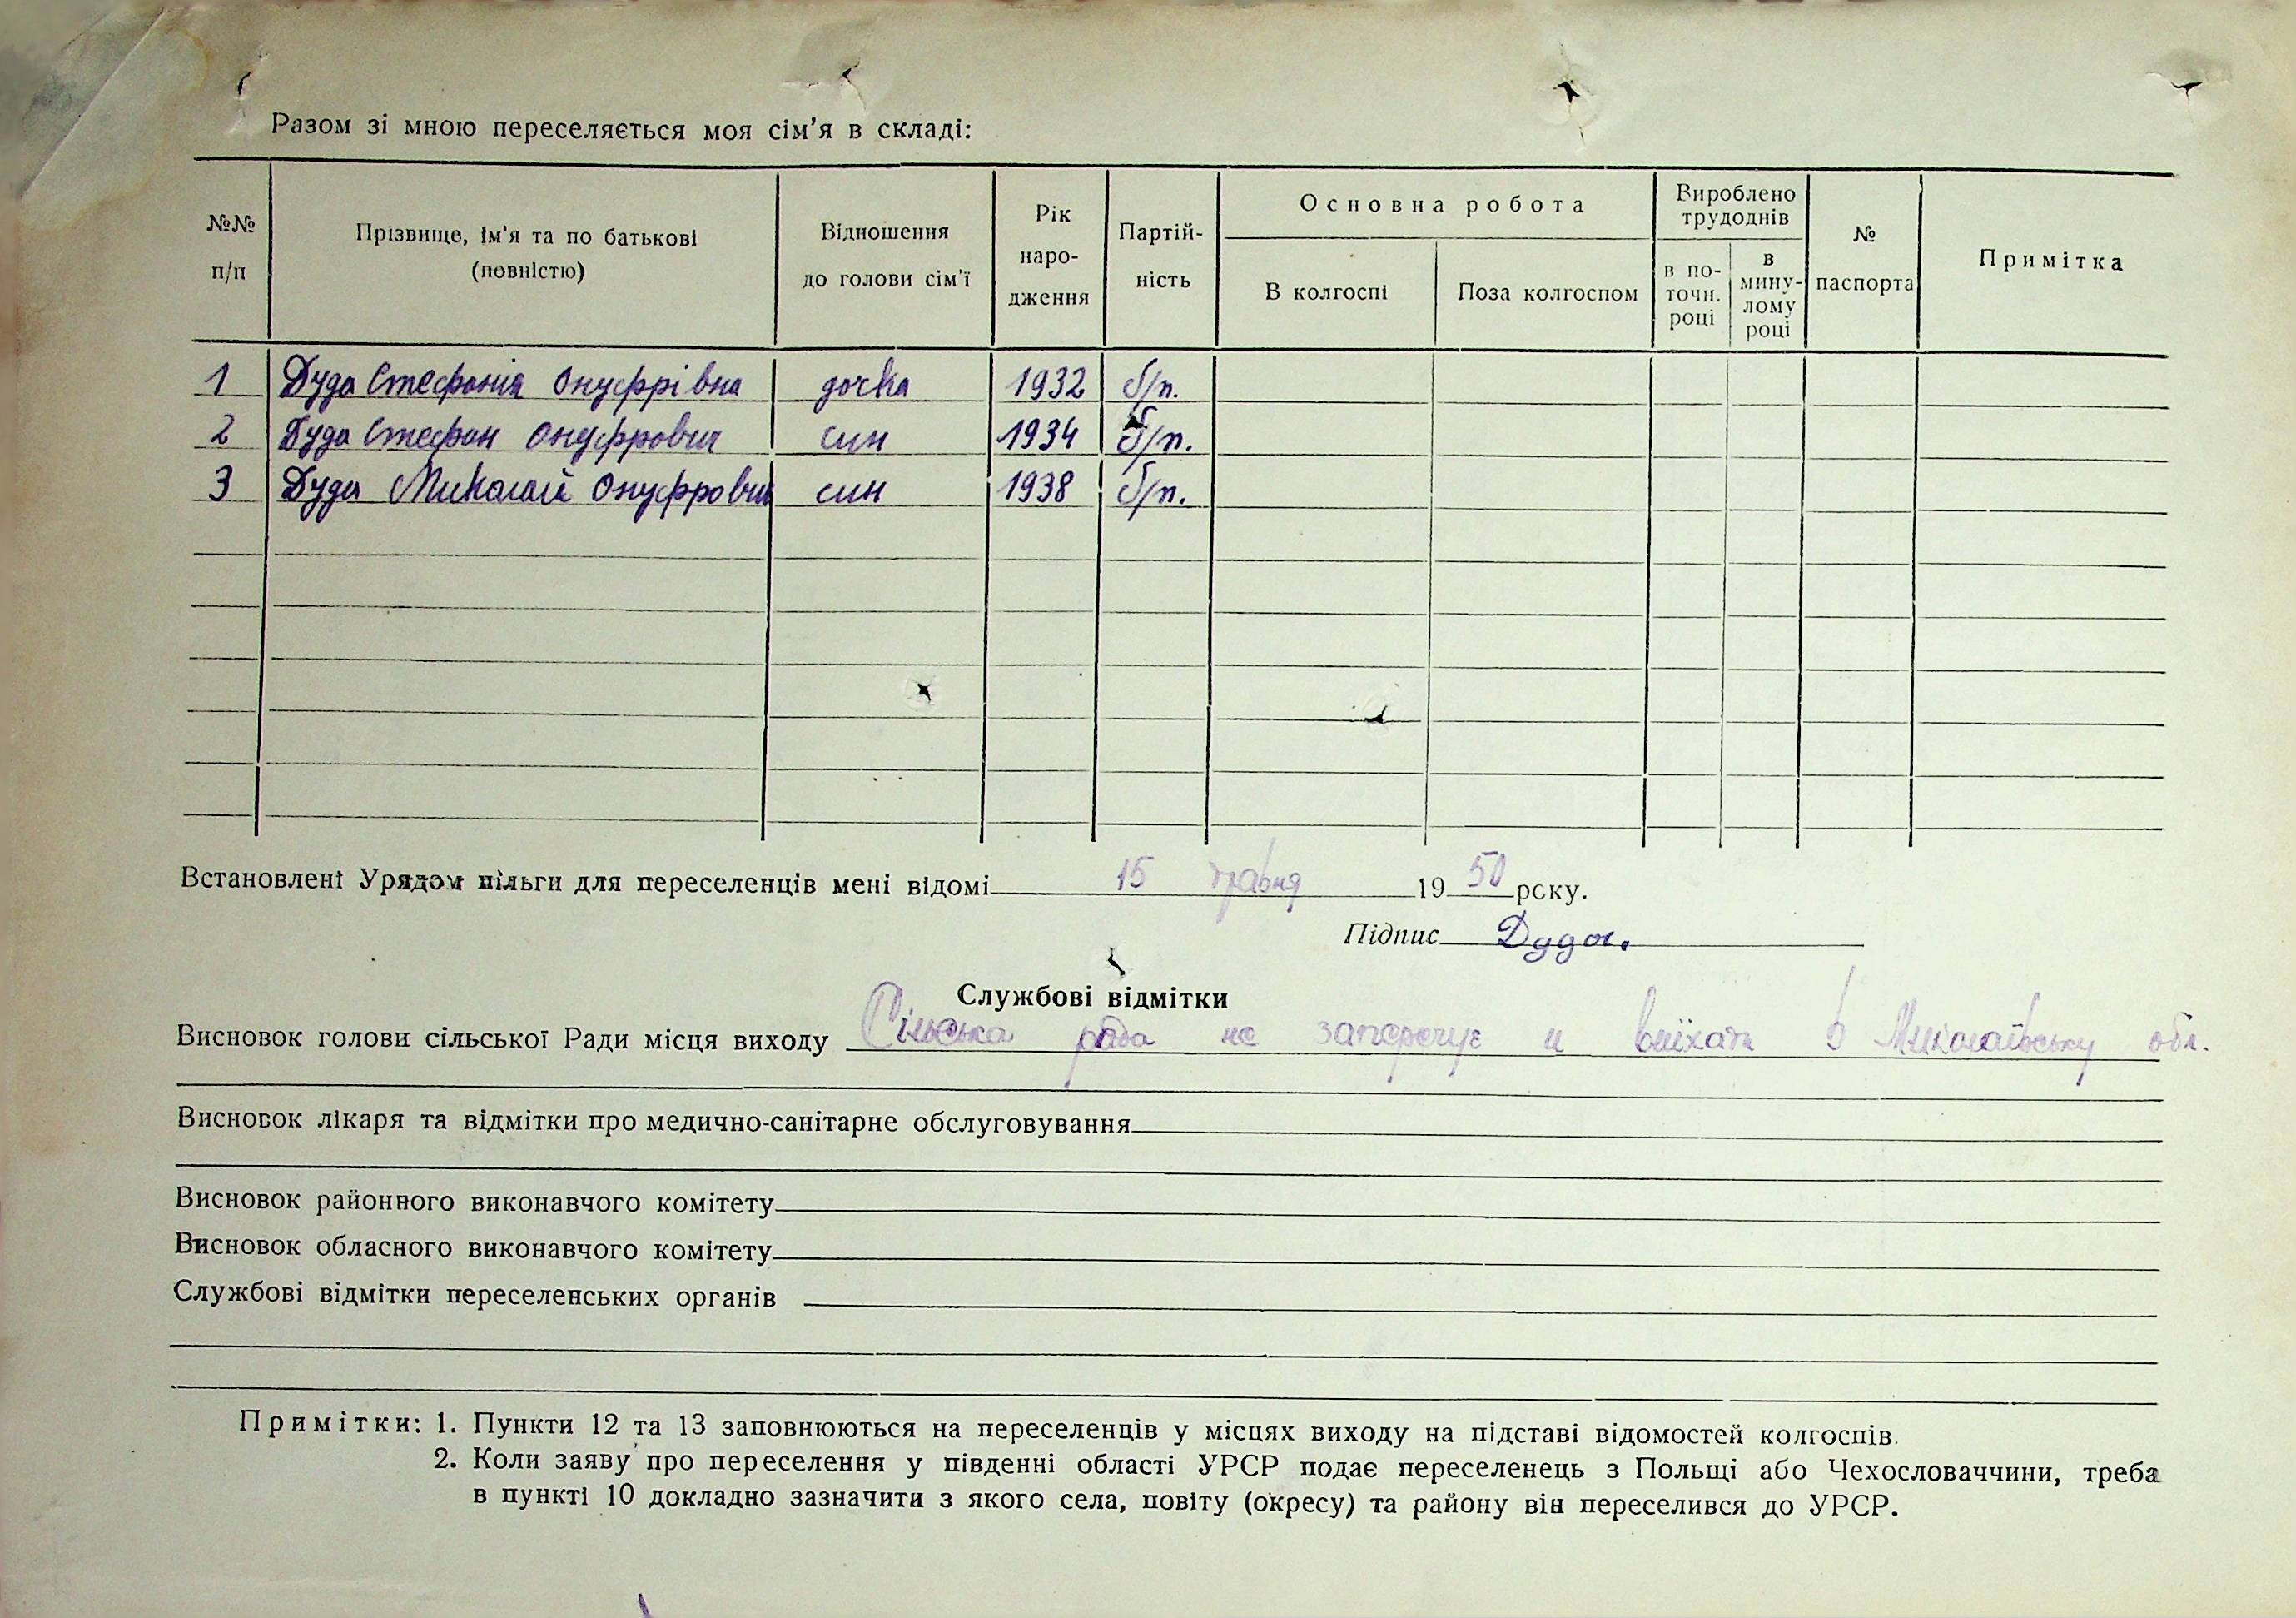 Разом зі мною переселяється моя сім'я в складі:
№№ п/п
Прізвище, ім'я та по батькові (повністю)
Відношення до голови сім'ї
Рік народження
Партійність
Основна робота
В колгоспі
Поза колгоспом
Вироблено трудоднів
в поточн. році
в минулому році
№ паспорта
Примітка
1 Дуда Стефанія Онуфрівна дочка 1932 б/п.
2 Дуда Стефан Онуфрович син 1934 б/п.
3 Дуда Миколай Онуфрович син 1938 б/п.
Встановлені Урядом пільги для переселенців мені відомі 15 травня 1950 року.
Підпис Дуда.
Службові відмітки
Висновок голови сільської Ради місця виходу Сільська рада не заперечує и виїхати в Миколаївську обл.
Висновок лікаря та відмітки про медично-санітарне обслуговування
Висновок районного виконавчого комітету
Висновок обласного виконавчого комітету
Службові відмітки переселенських органів
Примітки: 1. Пункти 12 та 13 заповнюються на переселенців у місцях виходу на підставі відомостей колгоспів.
2. Коли заяву про переселення у південні області УРСР подає переселенець з Польщі або Чехословаччини, треба
в пункті 10 докладно зазначити з якого села, повіту (окресу) та району він переселився до УРСР.